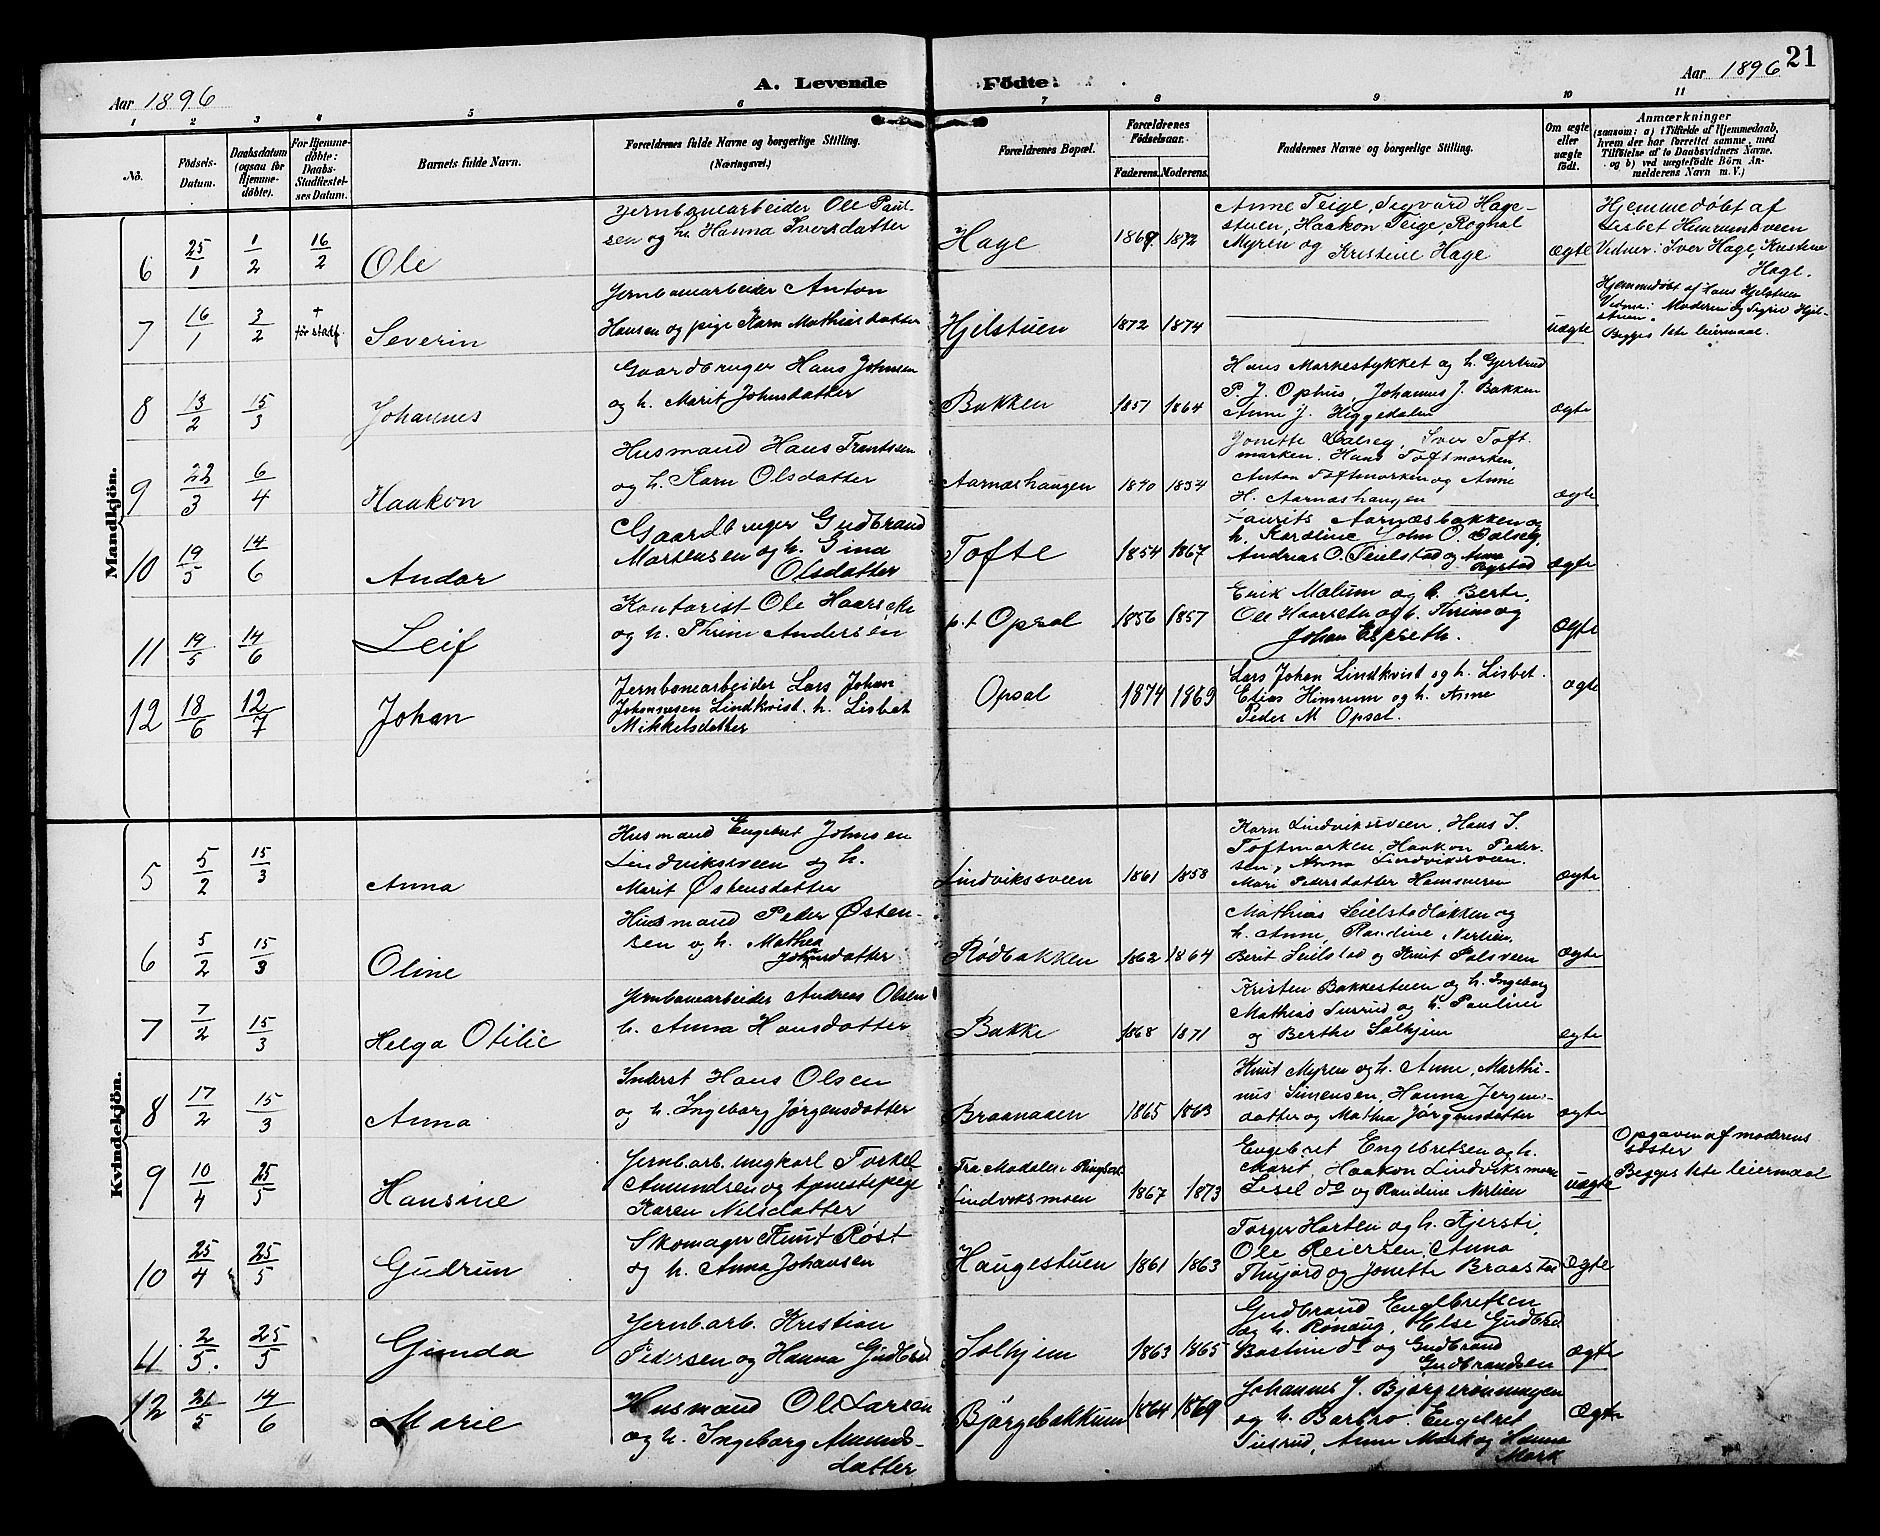 21
Aar 1896
A. Levende Födte.
Aar 1896
1 2 3 4 5 6 7 8 9 10 11
No.
Födsels-Datum.
Daabsdatum (ogsaa for Hjemme-döbte).
For Hjemme-döbte: Daabs-Stadfæstel-ses Datum.
Barnets fulde Navn.
Forældrenes fulde Navne og borgerlige Stilling. (Næringsvei.)
Forældrenes Bopæl.
Forældrenes Födselsaar.
Faderens. Moderens.
Faddernes Navne og borgerlige Stilling.
Om ægte eller uægte födt.
Anmærkninger
(saasom: a) i Tilfælde af Hjemmedaab, hvem der har forrettet samme, med Tilföielse af to Daabsvidners Navne. og b) ved uægtefödte Börn Anmelderens Navn m. V.)
Mandkjön.
6 25/1 1/2 16/2 Ole
Jernbanearbeider Ole Paul-
sen og h. Hanna Iversdatter
Hage 1869 1872
Anne Teige, Sigvard Hage-
stuen, Haakon Teige, Rognal
Myren og Kristine Hage
ægte
Hjemmedøbt af
Lisbet Himrumsveen
Vidner: Iver Hage, Kristine
Hage.
7 16/1 3/2 + før stadf. Severin
Jernbanearbeider Anton
Hansen og pige Karn Mathiasdatter
Hjelstuen 1872 1874
uægte
Hjemmedøbt af Hans Hjelstuen
Vidner: Moderen og Sigrid Hjel-
stuen.
Begges 1ste leiermaal.
8 13/2 15/3 Johannes
Gaardbruger Hans Johnsen
og h. Marit Johnsdatter
Bakken 1857 1864
Hans Markestykket og h. Gjertrud
P. J. Ophus, Johannes J. Bakken
Anne J. Heggedalen
ægte
9 22/3 6/4 Haakon
Husmand Hans Frantssen
og h. Karn Olsdatter
Aarnæshaugen 1840 1854
Jonette Dalseg, Iver Toft-
marken, Hans Toftmarken,
Anton Toftmarken og Anne
H. Aarnæshaugen
ægte
10 19/5 14/6 Andor
Gaardbruger Gudbrand
Mortensen og h. Gina
Olsdatter
Tofte 1854 1867
Laurits Aarnæsbakken og
h. Karoline, John O. Dalseg,
Andreas O. Seielstad og Anne
ægte
11 19/5 14/6 Leif
Kontorist Ole Haarseth
og h. Thrine Andersen
p.t Opsal 1856 1857
Erik Mælum og h. Berte,
Ole Haarseth og h. Thrine og
Johan Espseth.
ægte
12 18/6 12/7 Johan
Jernbanearbeider Lars Johan
Johannesen Lindkvist. h. Lisbet
Mikkelsdatter
Opsal 1874 1869
Lars Johan Lindkvist og h. Lisbet.
Elias Himrum og h. Anne
Peder M Opsal.
ægte
Kvindekjön.
5 5/2 15/3 Anna
Husmand Engebret Johnsen
Lindviksveen og h.
Marit Østensdatter
Lindviksveen 1861 1858
Karn Lindviksveen, Hans I.
Toftmarken, Haakon Peder-
sen, Anna Lindviksveen.
Mari Pedersdatter Hamsveen
ægte
6 5/2 15/3 Oline
Husmand Peder Østen-
sen og h. Mathea
Johnsdatter
Rødbakken 1862 1864
Mathias Seielstadløkken og
h. Anne, Randine Nerlien,
Berit Seilstad og Knut Dalsveen
ægte
7 7/2 15/3 Helga Otilie
Jernbanearbeider Andreas Olsen
h. Anna Hansdatter
Bakke 1868 1871
Kristen Bakkestuen og h. Ingeborg
Mathias Tusrud og h. Pauline
og Berthe Solhjem
ægte
8 17/2 15/3 Anna
Inderst Hans Olsen
og h. Ingeborg Jørgensdatter
Braanaaen 1865 1863
Knut Myren og h. Anne, Marthi-
nus Simensen, Hanna Jørgens-
datter og Mathea Jørgensdatter
ægte
9 10/4 25/5 Hansine
Jernb.arb. ungkarl Torkel
Amundsen og tjenestepige
Karen Nilsdatter
Fra Modalen i Ringebu
Lindviksmoen 1867 1873
Engebret Engebretsen og h.
Marit, Haakon Lindviksmoen
Lisel do og Randine Nerlien
uægte
Opgaven af moderens
søster
Begges 1ste leiermaal
10 25/4 25/5 Gudrun
Skomager Knut Røst
og h. Anna Johansen
Haugestuen 1861 1863
Torger Harten og h. Kjersti,
Ole Reiersen, Anna
Thujord og Jonette Braastad
Ægte
11 2/5. 25/5 Gunda
Jernb.arb. Kristian
Pedersen og Hanna Gudbrd
Solhjem 1863 1865
Gudbrand Engebretsen
og h. Rønaug, Else Gudbrd
Bastine do og Gudbrand
Gudbrandsen
Ægte
12 21/5 14/6 Marie
Husmand Ole Larsen
og h. Ingeborg Amunds-
datter
Bjørgebakken 1864 1869
Johannes J. Bjørgerønningen
og h. Barbro Engebret
Tusrud, Anne Mark og Hanna
Mark
Ægte